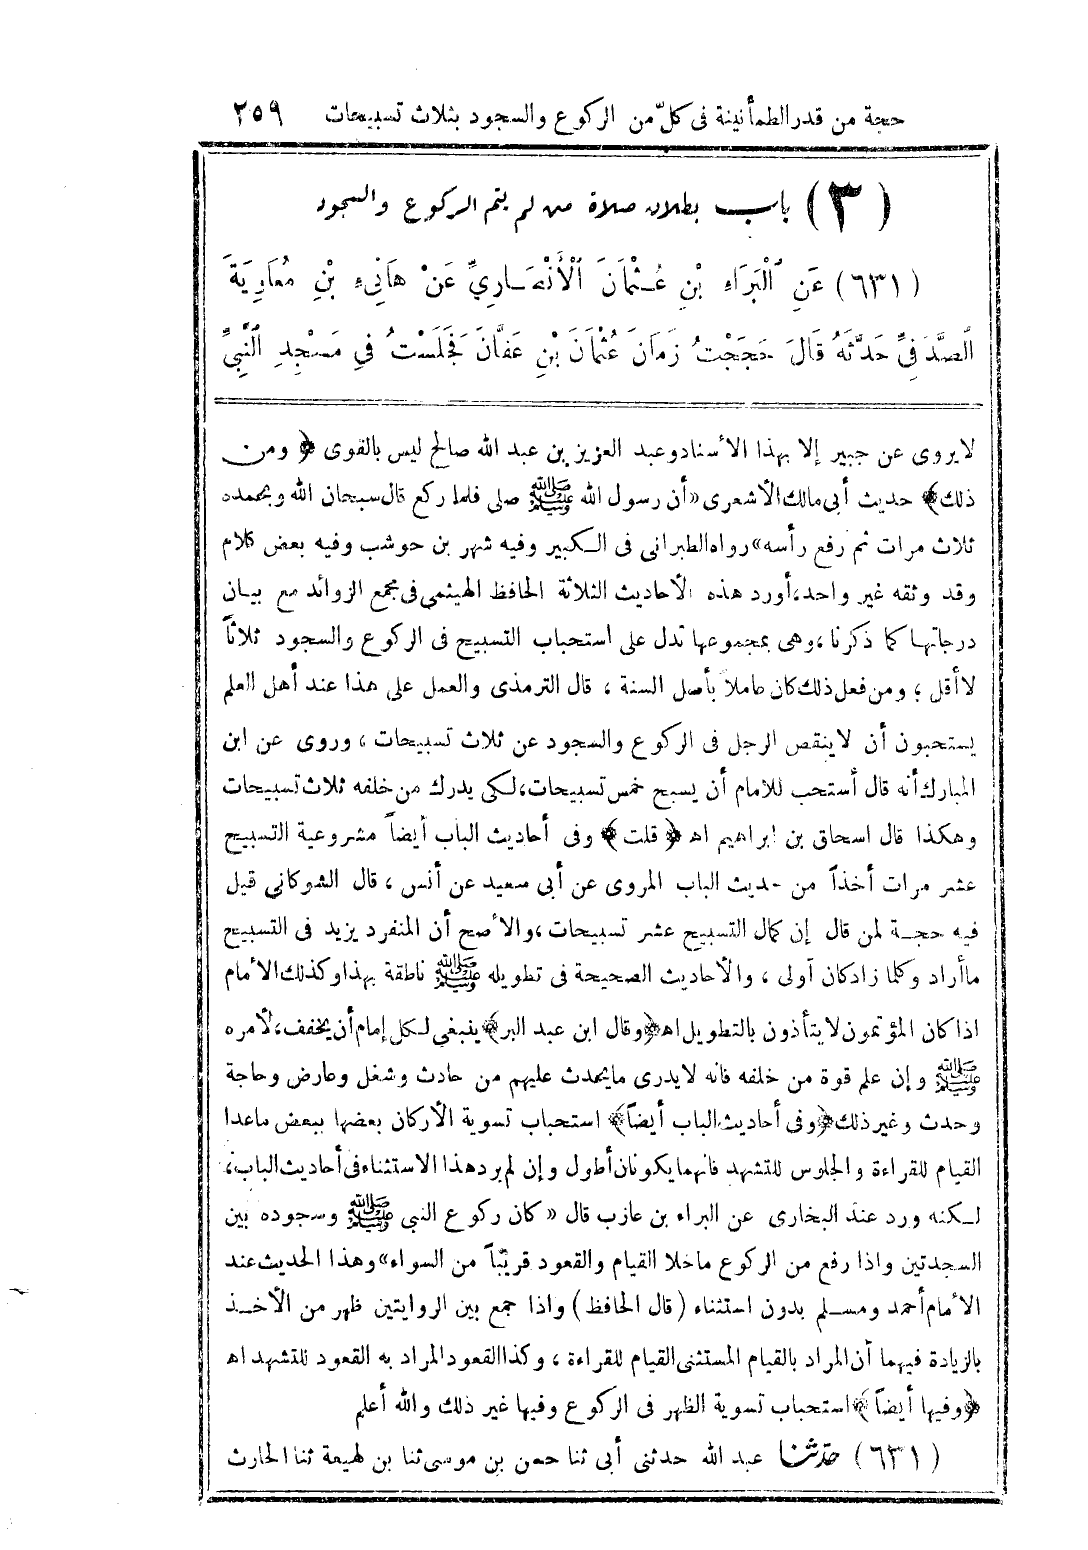 حجة من قدر الطمأنينة فى كلّ من الركوع والسجود بثلاث تسبيحات ٢٥٩
(٣) باب بطلان صلاة من لم يتم الركوع والسجود
(٦٣١) عَنِ ٱلْبَرَاءِ بْنِ عُثْمَانَ ٱلْأَنْصَارِيِّ عَنْ هَانِىءِ بْنِ مُعَاوِيَةَ
ٱلصَّدَفِىِّ حَدَّثَهُ قَالَ حَجَجْتُ زَمَانَ عُثْمَانَ بْنِ عَفَّانَ فَجَلَسْتُ فِي مَسْجِدِ ٱلنَّبِيِّ
لايروى عن جبير إلا بهذا الأسناد وعبد العزيز بن عبد الله صالح ليس بالقوى ﴿ ومن
ذلك﴾ حديث أبى مالك الأشعرى «أن رسول الله ﷺ صلى فلما ركع قال سبحان الله وبحمده
ثلاث مرات ثم رفع رأسه» رواه الطبرانى فى الكبير وفيه شهر بن حوشب وفيه بعض كلام
وقد وثقه غير واحد، أورد هذه الأحاديث الثلاثة الحافظ الهيثمى فى مجمع الزوائد مع بيان
درجاتها كما ذكرنا، وهى بمجموعها تدل على استحباب التسبيح فى الركوع والسجود ثلاثاً
لاأقل ؛ ومن فعل ذلك كان عاملاً بأصل السنة ، قال الترمذى والعمل على هذا عند أهل العلم
يستحبون أن لاينقص الرجل فى الركوع والسجود عن ثلاث تسبيحات ، وروى عن ابن
المبارك أنه قال أستحب للامام أن يسبح خمس تسبيحات، لكى يدرك من خلفه ثلاث تسبيحات
وهكذا قال اسحاق بن ابراهيم اه ﴿ قلت ﴾ وفى أحاديث الباب أيضاً مشروعية التسبيح
عشر مرات أخذاً من حديث الباب المروى عن أبى سعيد عن أنس ، قال الشوكاني قيل
فيه حجة لمن قال إن كمال التسبيح عشر تسبيحات ، والأصح أن المنفرد يزيد فى التسبيح
ماأراد وكلما زاد كان أولى ، والأحاديث الصحيحة فى تطويله ﷺ ناطقة بهذا وكذلك الأمام
اذا كان المؤتمون لايتأذون بالتطويل اه ﴿وقال ابن عبد البر﴾ ينبغى لكل إمام أن يخفف، لأمره
ﷺ وإن علم قوة من خلفه فانه لايدرى مايحدث عليهم من حادث وشغل وعارض وحاجة
وحدث وغير ذلك ﴿وفى أحاديث الباب أيضاً﴾ استحباب تسوية الأركان بعضها ببعض ماعدا
القيام للقراءة والجلوس للتشهد فانهما يكونان أطول وإن لم يرد هذا الاستثناء فى أحاديث الباب،
لكنه ورد عند البخارى عن البراء بن عازب قال « كان ركوع النبى ﷺ وسجوده بين
السجدتين واذا رفع من الركوع ماخلا القيام والقعود قريباً من السواء» وهذا الحديث عند
الأمام أحمد ومسلم بدون استثناء (قال الحافظ) واذا جمع بين الروايتين ظهر من الأخذ
بالزيادة فيهما أن المراد بالقيام المستثنى القيام للقراءة ، وكذا القعود المراد به القعود للتشهد اه
﴿وفيها أيضاً﴾ استحباب تسوية الظهر فى الركوع وفيها غير ذلك والله أعلم
(٦٣١) حدثنا عبد الله حدثنى أبى ثنا حسن بن موسى ثنا بن لهيعة ثنا الحارث